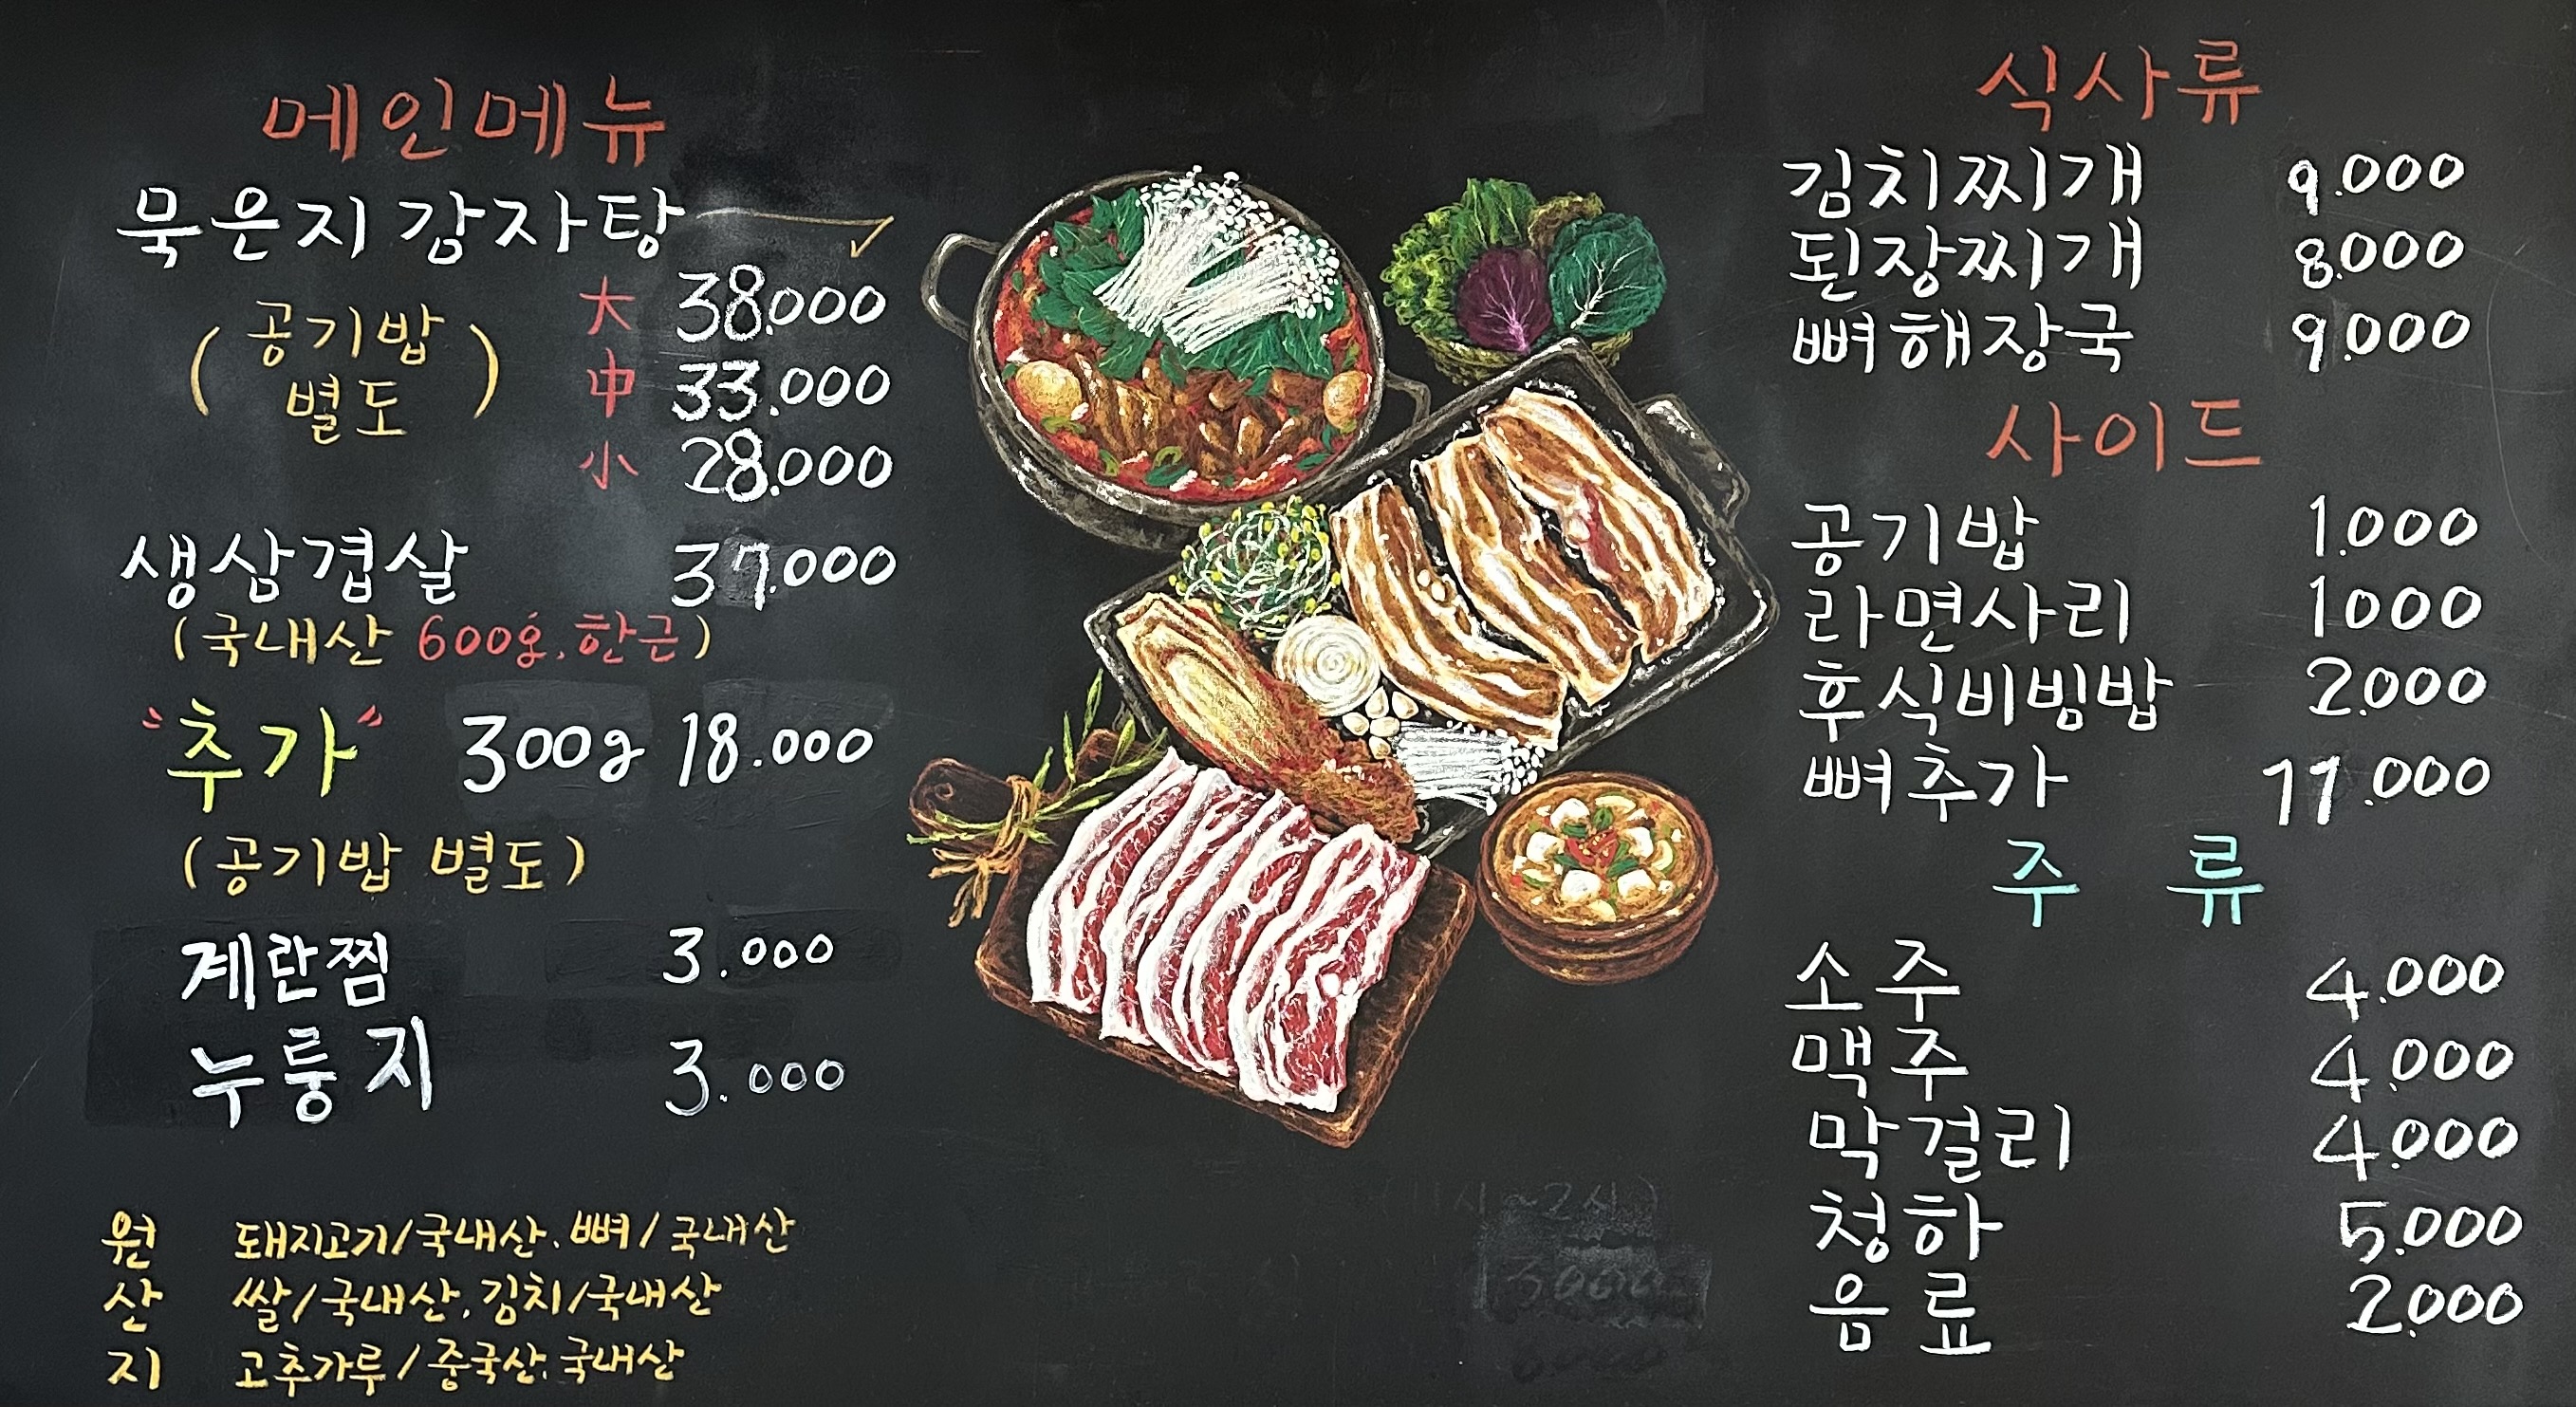 메인메뉴
묵은지 감자탕
(공기밥
별도)
大 38.000
中 33.000
小 28.000
생삼겹살 37.000
(국내산 600g. 한근)
"추가" 300g 18.000
(공기밥 별도)
계란찜 3.000
누룽지 3.000
원 돼지고기/국내산. 뼈/국내산
산 쌀/국내산. 김치/국내산
지 고추가루/중국산. 국내산
식사류
김치찌개 9.000
된장찌개 8.000
뼈해장국 9.000
사이드
공기밥 1.000
라면사리 1000
후식비빙밥 2.000
뼈추가 11.000
주 류
소주 4.000
맥주 4.000
막걸리 4.000
청하 5.000
음료 2.000